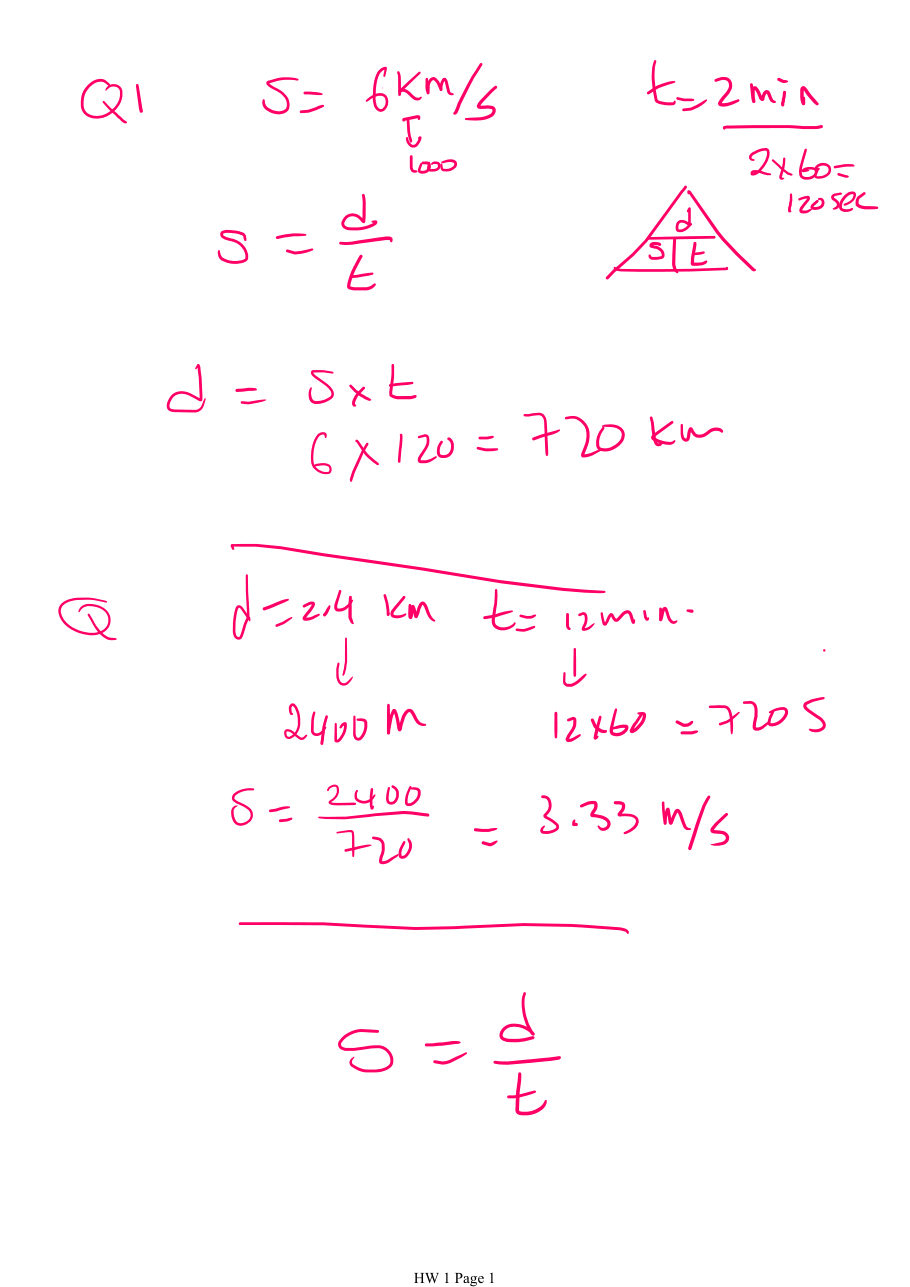 Q1 S= 6km/s t=2min
↓
1000
2×60=
120sec
S = d/t
d
S t
d = S×t
6×120=720 km
Q d=2.4 km t= 12min.
↓ ↓
2400 m 12×60 =720 S
S= 2400/720 = 3.33 m/s
S = d/t
HW 1 Page 1